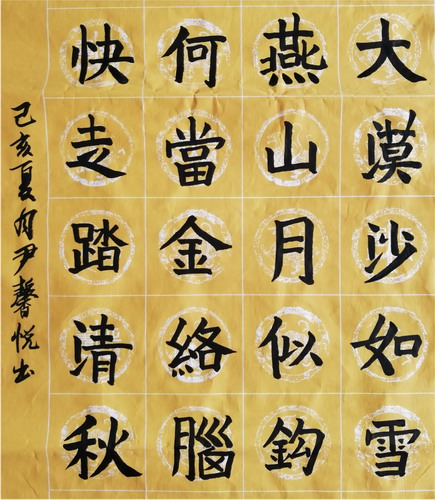 大漠沙如雪
燕山月似鈎
何當金絡腦
快走踏清秋
己亥夏月尹馨悦书